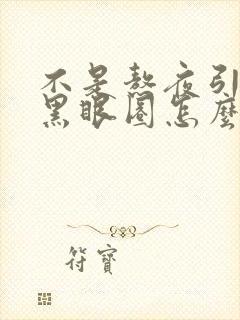 不是熬夜引
黑眼圈怎麼
符寶